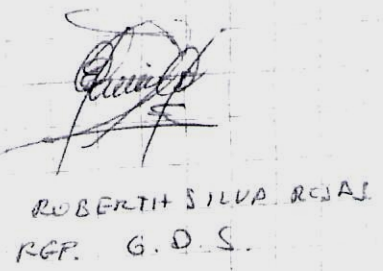 ROBERTH SILVA ROJAS
REP. G.D.S.